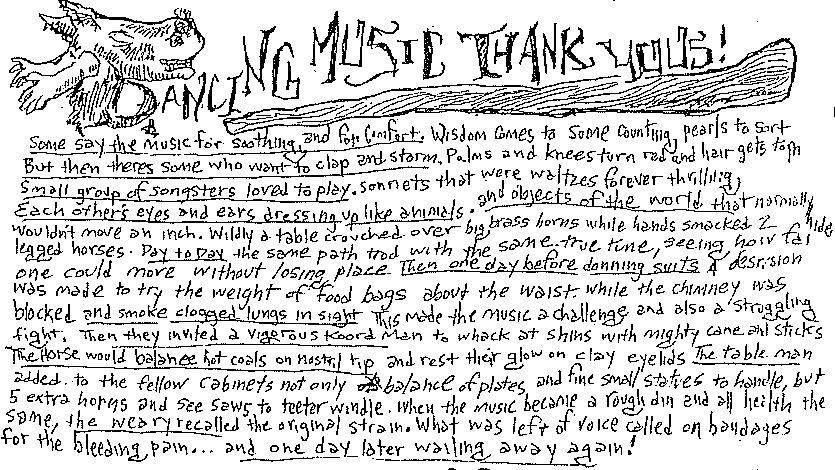 DANCING MUSIC THANK YOUS!
Some say the music for soothing, and for comfort. Wisdom comes to some counting, pearls to sort
But then theres some who want to clap and storm. Palms and knees turn red and hair gets torn
Small group of songsters loved to play. Sonnets that were waltzes forever thrilling,
Each other's eyes and ears dressing up like animals. and objects of the world that normally
wouldn't move an inch. Wildly a table crouched over big brass horns while hands smacked 2 hide
legged horses. Day to Day the same path trod with the same true tune, seeing how far
one could move without losing place. Then one day before donning suits a desrision
was made to try the weight of food bags about the waist. while the chimney was
blocked and smoke clogged lungs in sight This made the music a challeng and also a struggling
fight. Then they invited a vigerous Koord Man to whack at shins with mighty cane and sticks
The Horse would balance hot coals on nostril tip and rest their glow on clay eyelids The table man
added to the fellow cabinets not only balance of plates, and fine small statues to handle, but
5 extra horns and see saws to teeter windle. When the music became a rough din and all health the
same, the weary recalled the original strain. What was left of voice called on bandages
for the bleeding pain... and one day later wailing away again!